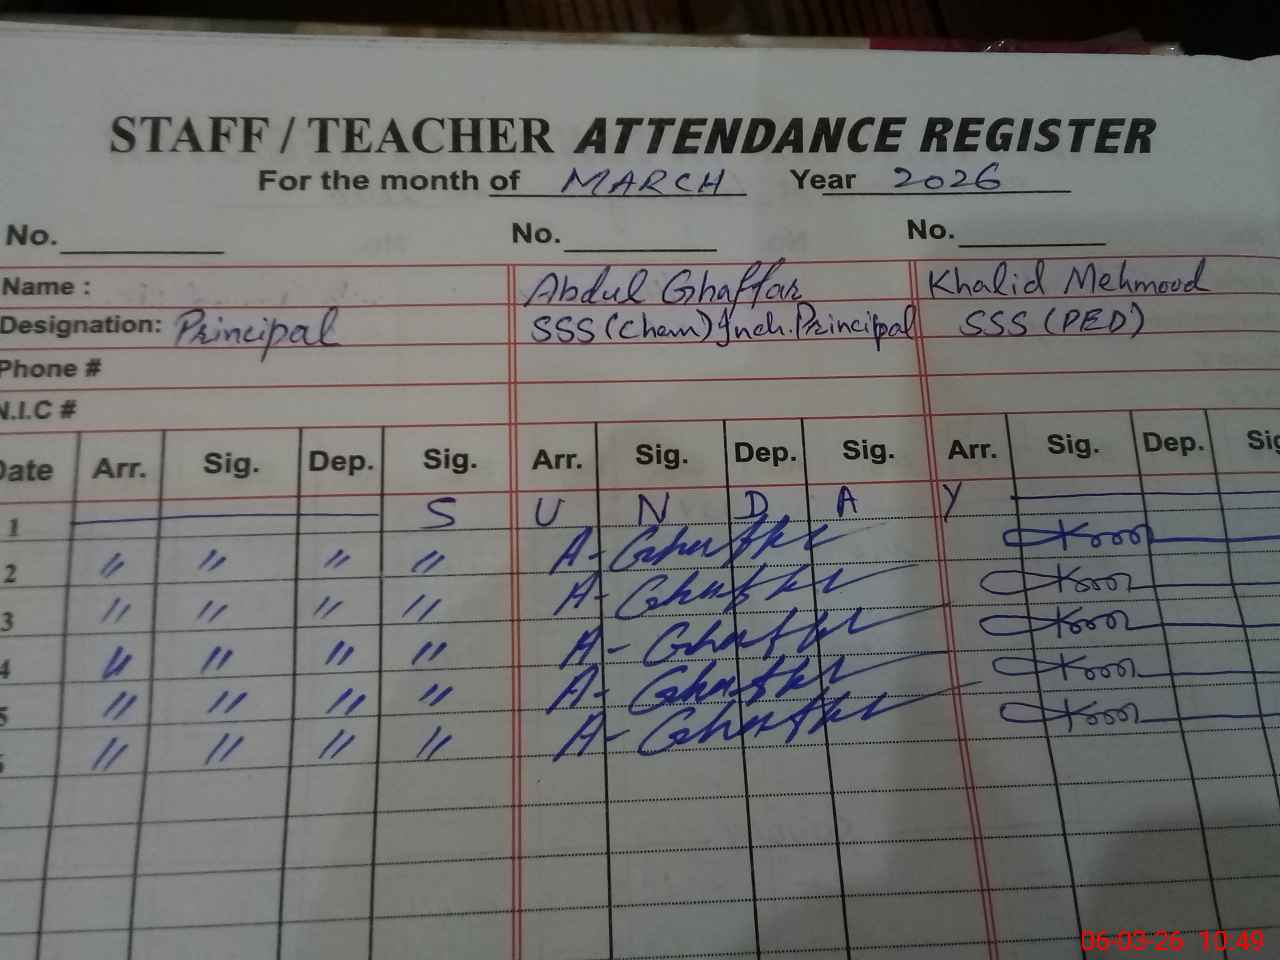 STAFF / TEACHER ATTENDANCE REGISTER
For the month of MARCH Year 2026
No. No. No.
Name : Abdul Ghaffar Khalid Mehmood
Designation: Principal SSS (Chem) Inch. Principal SSS (PED)
Phone #
N.I.C #
Date Arr. Sig. Dep. Sig. Arr. Sig. Dep. Sig. Arr. Sig. Dep. Sig
1 S U N D A Y
2 〃 〃 〃 〃 A-Ghaffar
3 〃 〃 〃 〃 A-Ghaffar
4 〃 〃 〃 〃 A-Ghaffar
5 〃 〃 〃 〃 A-Ghaffar
〃 〃 〃 〃 A-Ghaffar
06-03-26 10:49